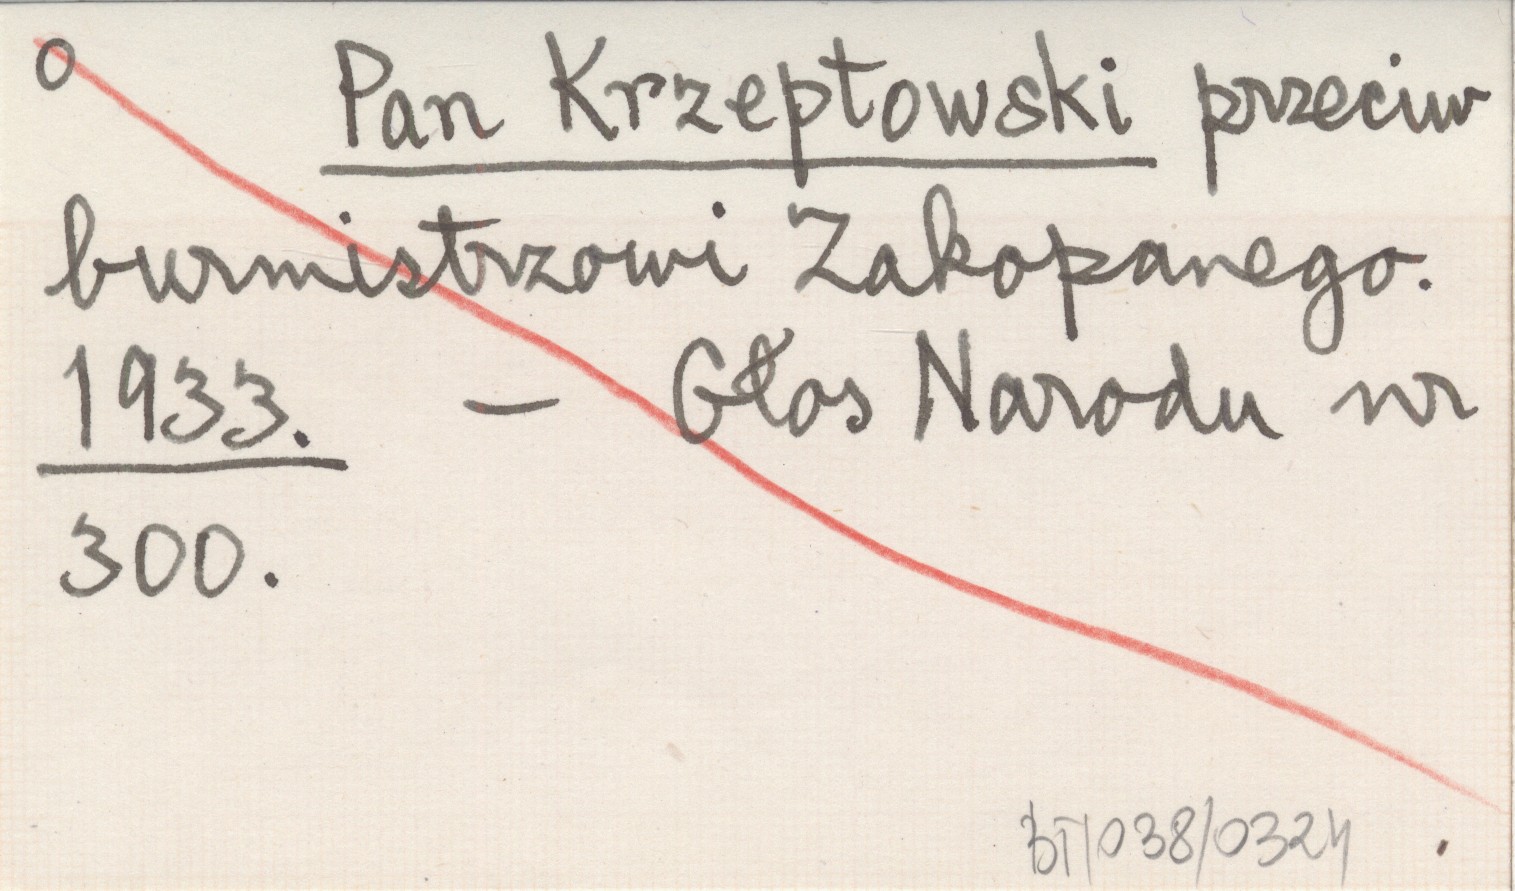 o Pan Krzeptowski przeciw
burmistrzowi Zakopanego.
1933. – Głos Narodu nr
300.
BT/038/0324